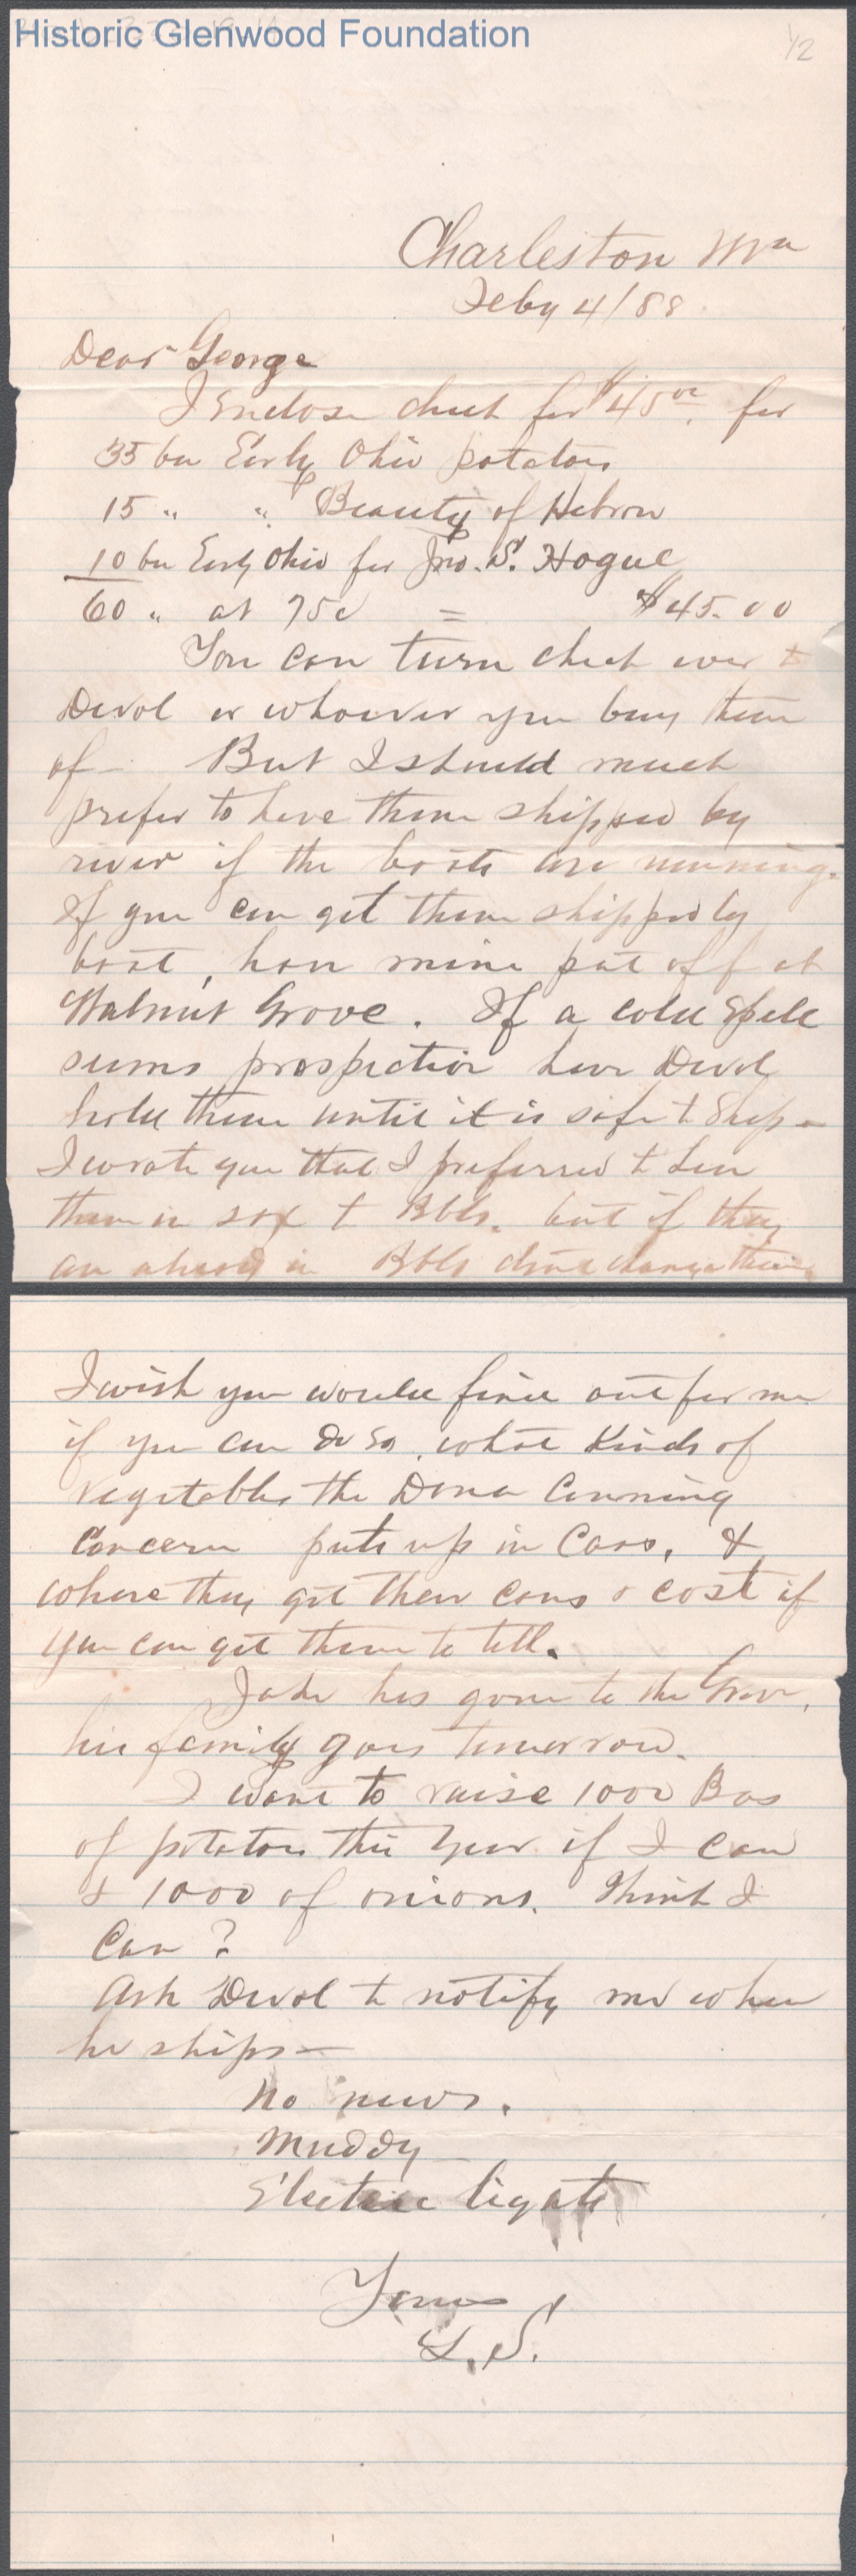 Historic Glenwood Foundation
1/2
Charleston Wva
Feby 4/88
Dear George
I Enclose check for $45 00. for
35 bu Early Ohio potatoes
15 " " Beauty of Hebron
10 bu Early Ohio for Jno. S. Hogue
60 " at 75c = $45.00
You can turn check over to
Devol or whoever you buy them
of — But I should much
prefer to have them shipped by
river if the boats are running.
If you can get them shipped by
boat, have mine put off at
Walnut Grove. If a cold Spell
seems prospective have Devol
hold them until it is safe to Ship —
I wrote you that I preferred to have
them in sax to Bbls. but if they
are already in Bbls dont change them.
I wish you would find out for me
if you can do so, what Kinds of
Vegetables the Dana Canning
Concern puts up in Cans, &
where they get their cans & cost if
you can get them to tell.
Jake has gone to the Grove,
his family goes tomorrow.
I want to raise 1000 Bus
of potatoes this year if I can
& 1000 of onions. Think I
Can?
Ask Devol to notify me when
he ships —
No news.
Muddy
Electric lights
Yours
L. S.